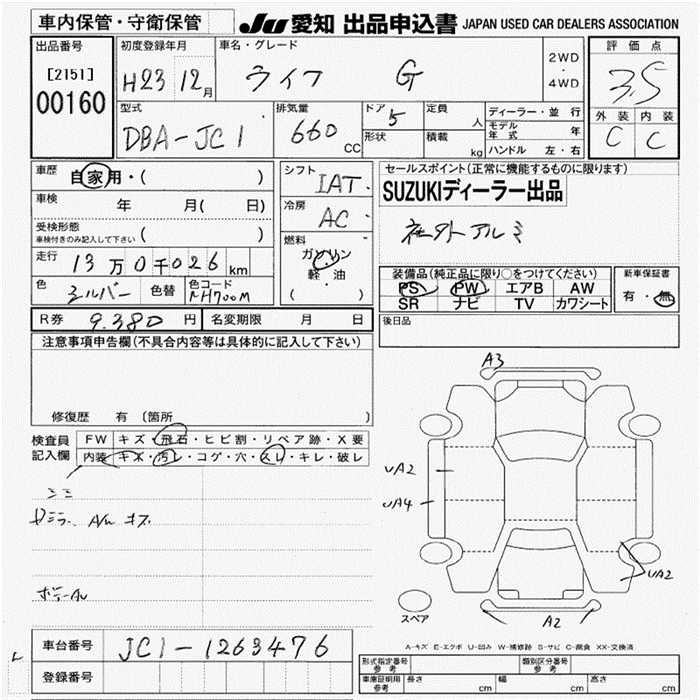 車内保管・守衛保管
JU 愛知 出品申込書 JAPAN USED CAR DEALERS ASSOCIATION
出品番号
[2151]
00160
初度登録年月
H23 12月
車名・グレード
ライフ G
2WD
・
4WD
評価点
3.5
型式
DBA-JC1
排気量
660 CC
ドア 5
形状
定員 人
積載 kg
ディーラー・並行
モデル年式 年
ハンドル 左・右
外装 内装
C C
車歴
自家用・( )
車検 年 月( 日)
受検形態
車検付きのみ記入して下さい ( )
走行 13万0千026km
色 シルバー 色替 色コード NH700M
シフト
IAT
冷房
AC
燃料
ガソリン
軽・油
( )
セールスポイント(正常に機能するものに限ります)
SUZUKIディーラー出品
社外アルミ
装備品(純正品に限り○をつけてください)
PS PW エアB AW
SR ナビ TV カワシート
新車保証書
有・無
R券 9.380円 名変期限 月 日
後日品
注意事項申告欄(不具合内容等は具体的に記入して下さい)
修復歴 有 〔箇所
検査員記入欄
FW キズ・飛石・ヒビ割・リペア跡・X要
内装 キズ・汚レ・コゲ・穴・スレ・キレ・破レ
A3
UA2
UA4
UA2
A2
スペア
A-キズ E-エクボ U-凹み W-補修跡 S-サビ C-腐食 XX-交換済
車台番号 JC1-1263476
登録番号
型式指定番号 参考
類別区分番号 参考
車庫証明用 参考
長さ cm
幅 cm
高さ cm